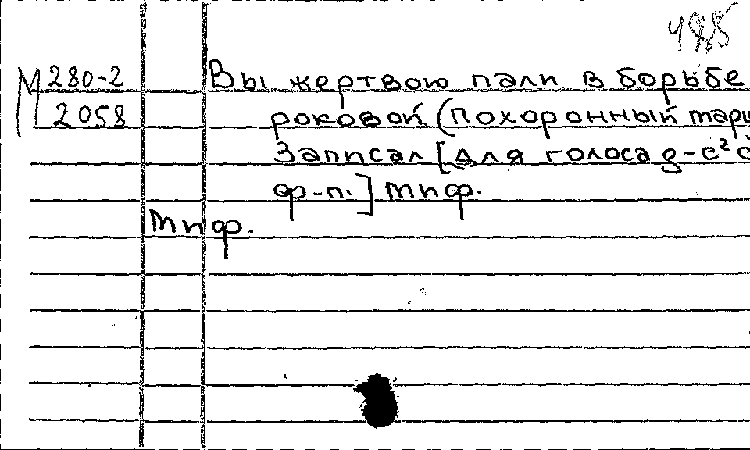 М 280-2
2058
Вы жертвою пали в борьбе
роковой (похоронный марш
Записал [для голоса g-e² с
ф-п.] Тиф.
Тиф.